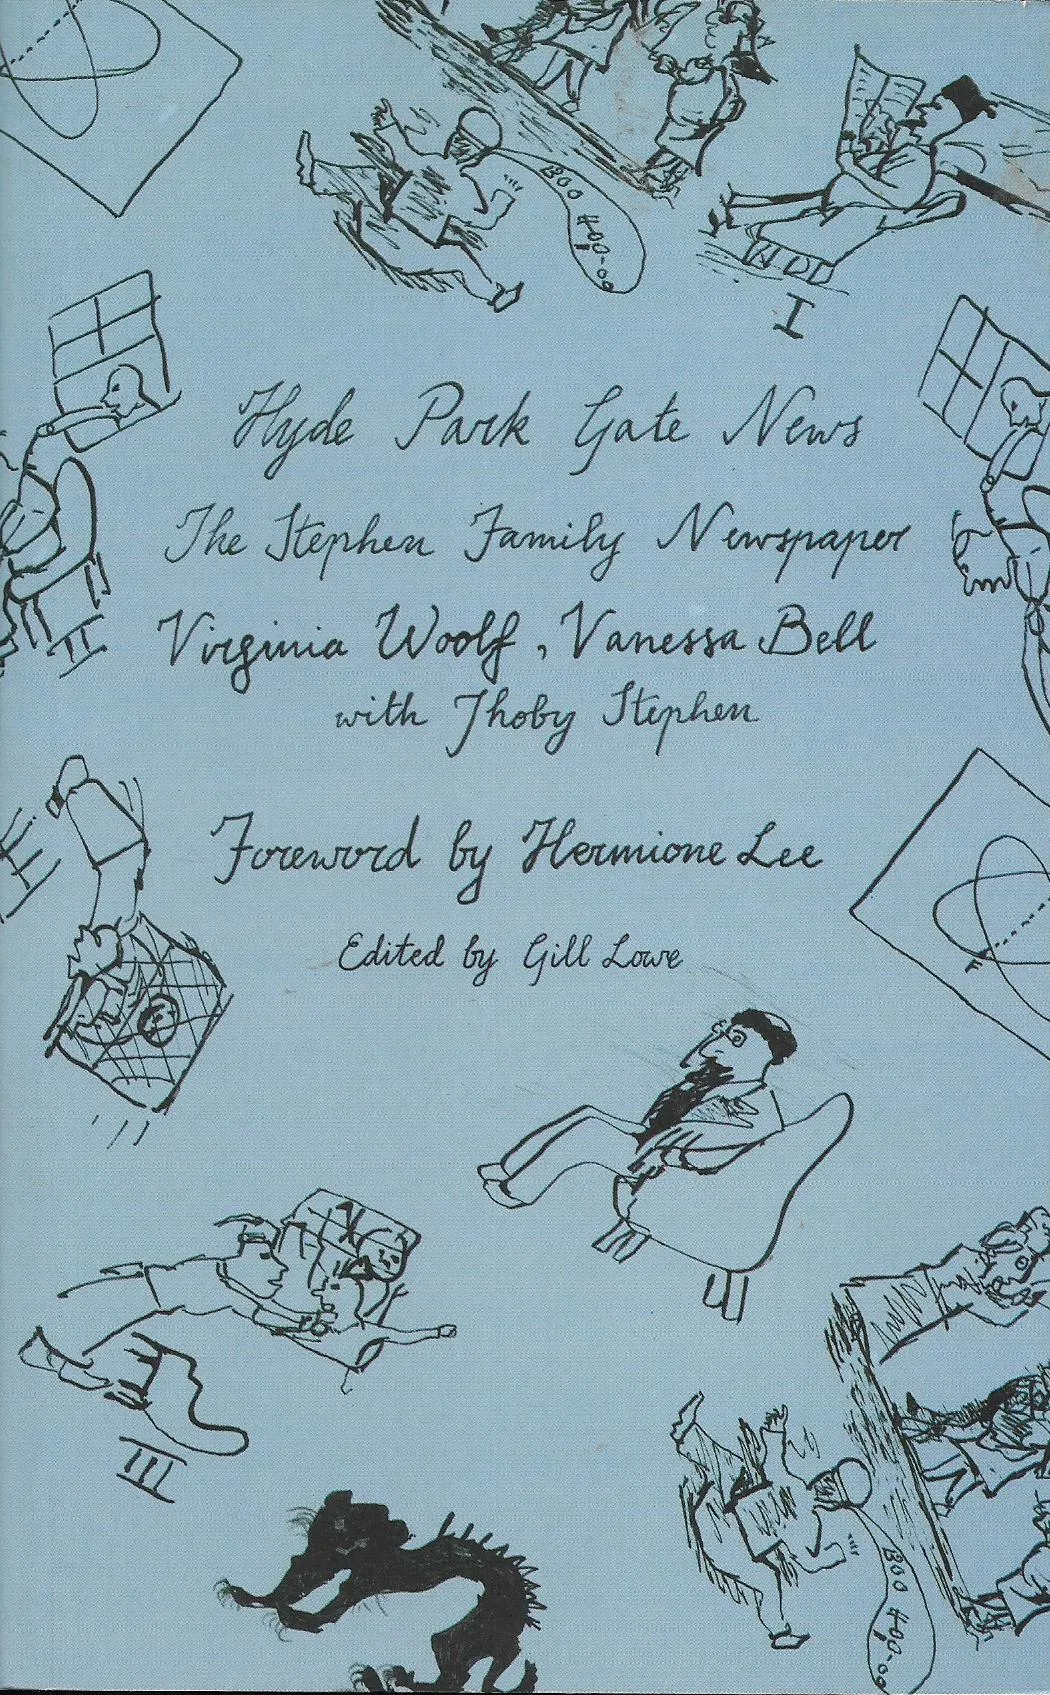 BOO
HOO-OO
I
Hyde Park Gate News
The Stephen Family Newspaper
Virginia Woolf, Vanessa Bell
II
with Thoby Stephen
Foreword by Hermione Lee
Edited by Gill Lowe
F
III
BOO
HOO-OO